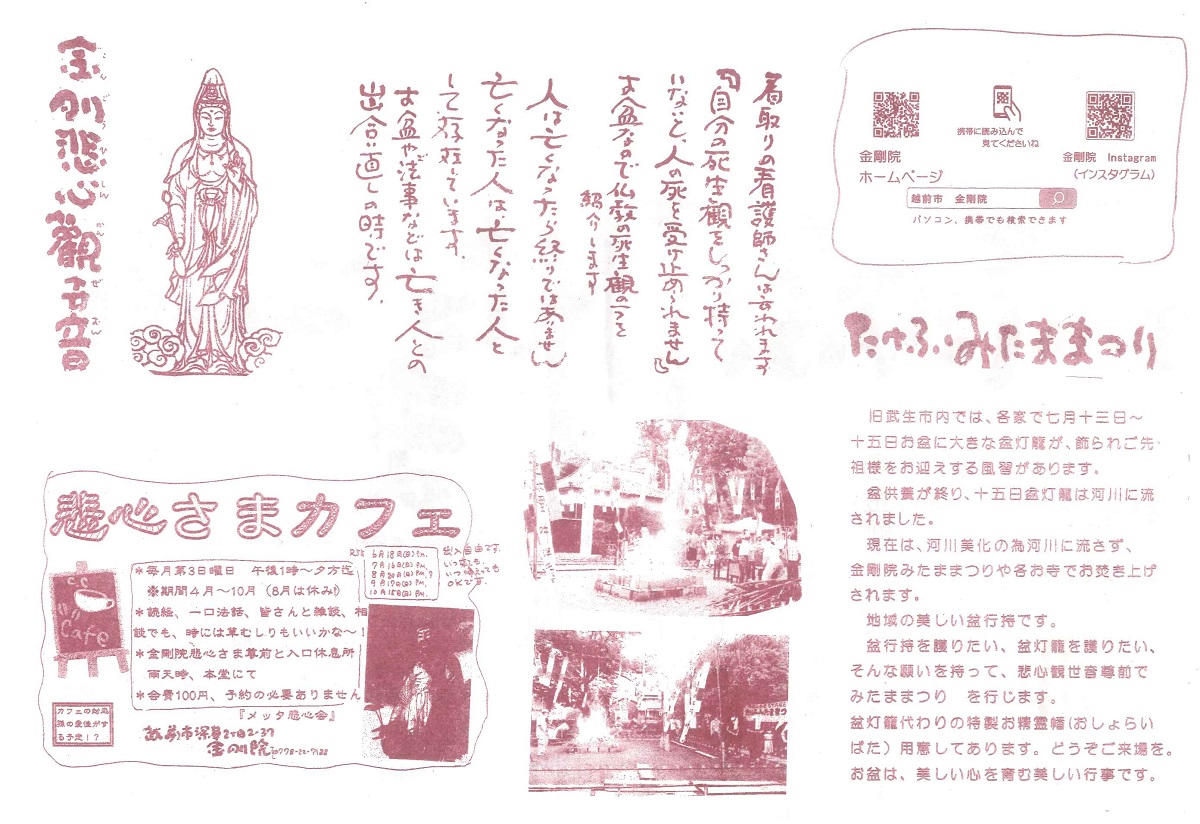 携帯に読み込んで
見てくださいね
金剛院
ホームページ
金剛院 Instagram
(インスタグラム)
越前市 金剛院
パソコン、携帯でも検索できます
たけふみたままつり
旧武生市内では、各家で七月十三日〜
十五日お盆に大きな盆灯籠が、飾られご先
祖様をお迎えする風習があります。
盆供養が終り、十五日盆灯籠は河川に流
されました。
現在は、河川美化の為河川に流さず、
金剛院みたままつりや各お寺でお焚き上げ
されます。
地域の美しい盆行持です。
盆行持を護りたい、盆灯籠を護りたい、
そんな願いを持って、悲心観世音尊前で
みたままつり を行じます。
盆灯籠代わりの特製お精霊幡(おしょらい
ばた)用意してあります。どうぞご来場を。
お盆は、美しい心を育む美しい行事です。
看取りの看護師さんは言われます
『自分の死生観をしっかり持って
いないと、人の死を受け止められません』
お盆なので仏教の死生観の1つを
紹介します
人は亡くなったら終りではありません
亡くなった人は、亡くなった人と
して存在しています。
お盆や法事などは亡き人との
出合い直しの時です。
金剛悲心観世音
こんごうひしんかんぜおん
悲心さまカフェ
*毎月第3日曜日 午後1時〜夕方迄
※期間4月〜10月(8月は休み!)
*読経、一口法話、皆さんと雑談、相
談でも、時には草むしりもいいかな〜!
*金剛院悲心さま尊前と入口休息所
雨天時、本堂にて
*会費100円、予約の必要ありません
『メッタ悲心会』
R5年
6月18日(日)P.M.
7月16日(日)P.M.
8月20日(日)P.M.?
9月17日(日)P.M.
10月15日(日)P.M.
出入自由です。
いつ来ても、
いつ帰っても
OKです。
Cafe
カフェの対応
孫の愛佳がす
る予定!?
越前市深草2丁目2-37
金剛院 ☎0778-22-7128